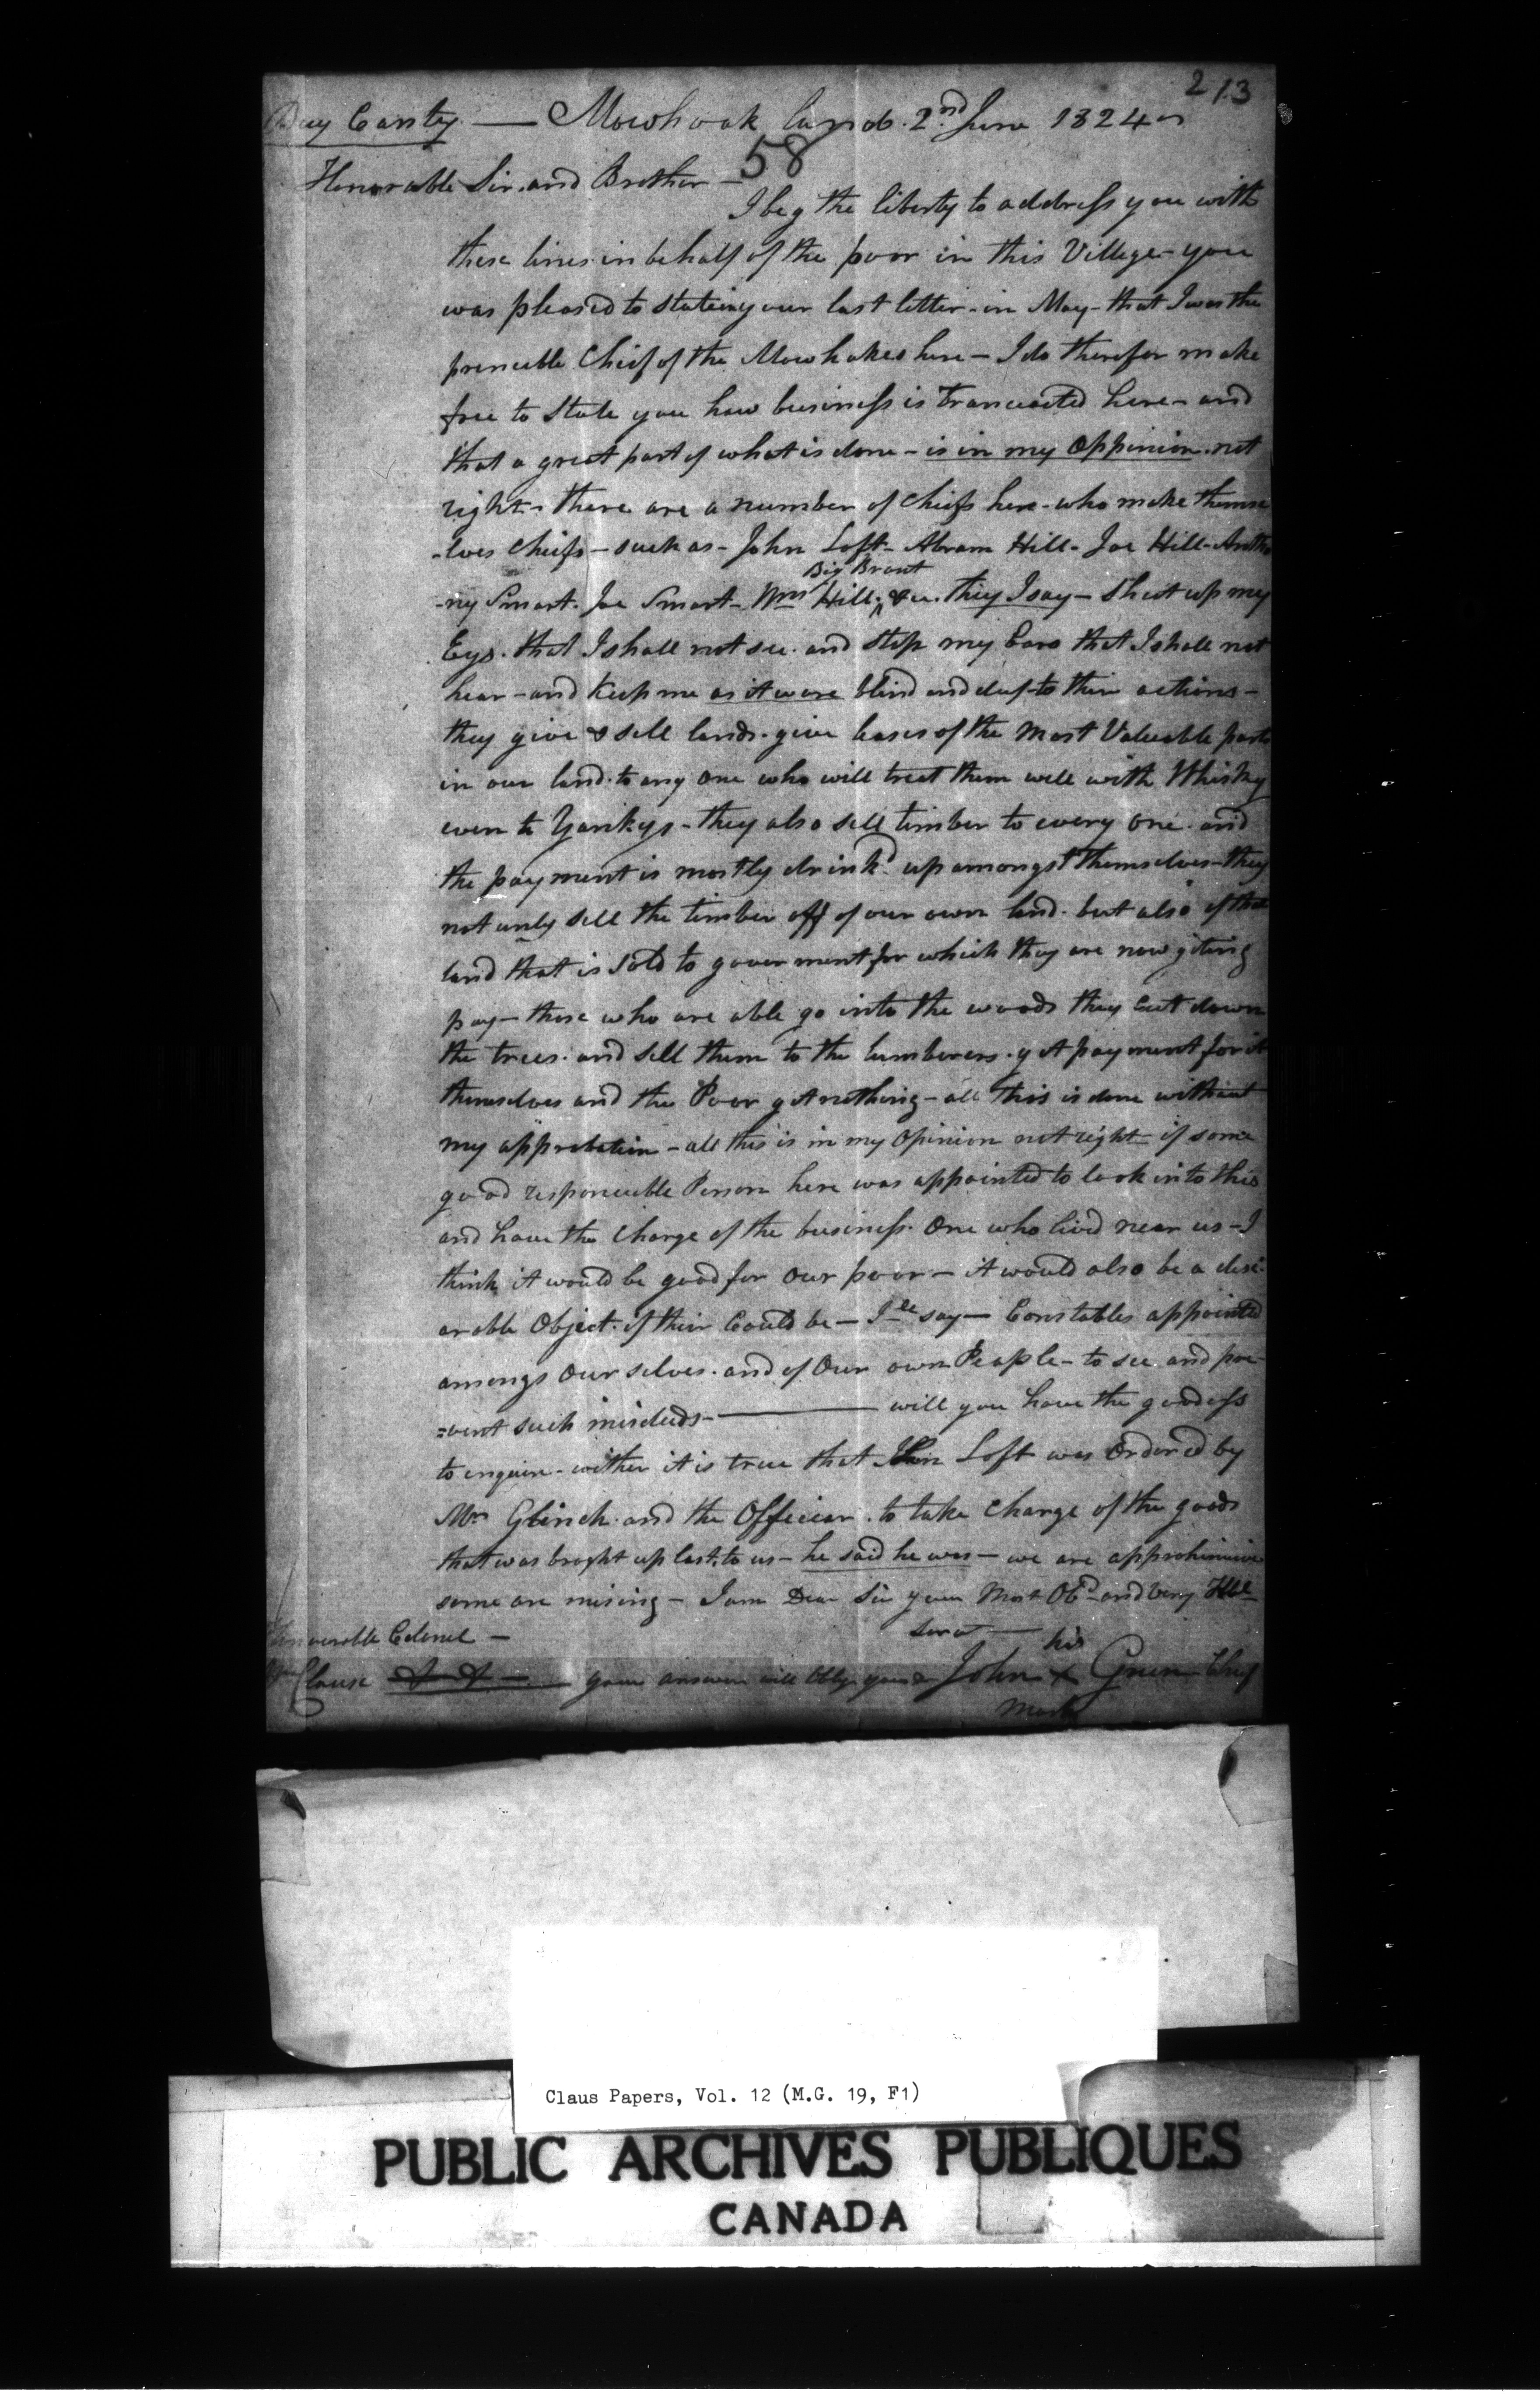 213
Bay Canty. — Mowhook land. 2nd June 1824
58
Honorable Sir. and Brother —
I beg the liberty to address you with
these lines in behalf of the poor in this Villege you
was pleased to state in your last letter - in May - that I was the
princeble Chief of the Mowhakes here — I do therefor make
free to state you how business is Trancacted here - and
that a great part of what is done - is in my Oppinion. not
right - there are a number of Chiefs here - who make themse
-lves Chiefs - such as - John Loft - Abram Hill - Joe Hill - Antho
Big Brant
-ny Smart. Joe Smart - Wm Hill. &c. they I say - Shut up my
Eys. that I shall not see. and stop my Ears that I shall not
hear - and Keep me as it were blind and deef to their actions -
they give & sell lands. give leases of the most Valuable parts
in our land. to any one who will treat them well with Whisky
even to Yankys - they also sell timber to every one. and
the payment is mostly drinkd up amongst themselves - they
not only sell the timber off of our own land. but also of that
land that is sold to goverment for which they are now giting
pay - those who are able go into the woods they Cut down
the trees. and sell them to the lumberers. git payment for it
themselves and the Poor git nothing - all this is done without
my approbation - all this is in my Opinion not right if some
good responceble Person here was appointed to look into this
and have the Charge of the business. One who lived near us - I
think it would be good for our poor - it would also be a desi-
arable Object. if their Could be - I'll say - Constables appointed
amongs Our selves. and of Our own People - to see and pre-
=vent such misdeeds - will you have the goodness
to enquire - wither it is true that John Loft was Ordered by
Mr Glinch and the Officier. to take Charge of the goods
that was broght up last. to us - he said he was - we are apprehinsive
some are mising - I am Dear Sir your Most Obd and Very Hbl
Honourable Colonel — Servt —
Clause your answer will Obly yours John his x mark Green Chief
Claus Papers, Vol. 12 (M.G. 19, F1)
PUBLIC ARCHIVES PUBLIQUES
CANADA